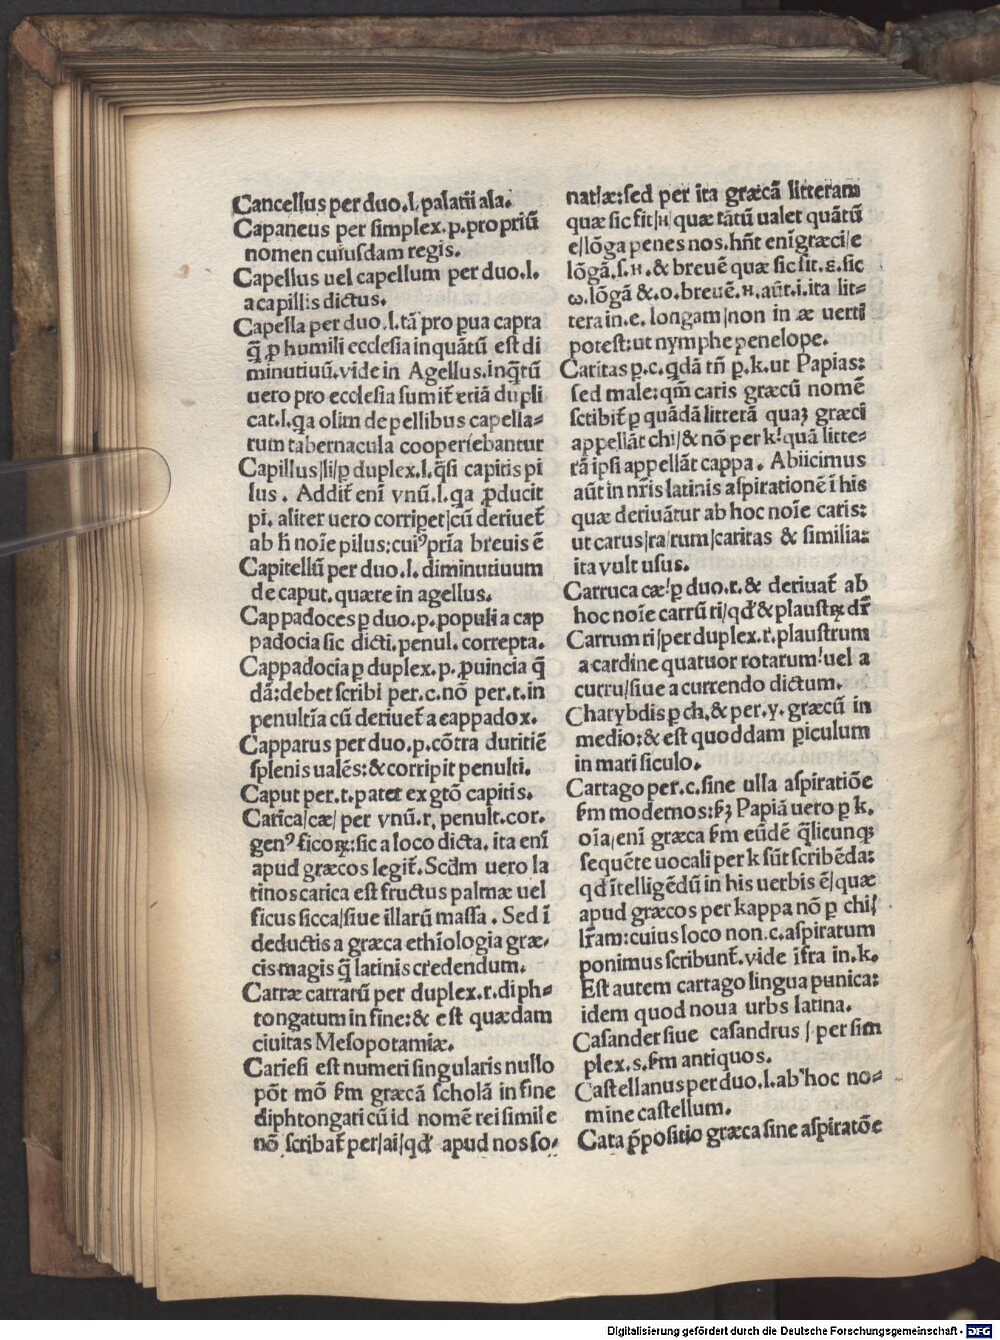 Cancellus per duo.l. palatii ala.
Capaneus per simplex.p.propriū
nomen cuiusdam regis.
Capellus uel capellum per duo.l.
a capillis dictus.
Capella per duo.l.tā pro pua capra
q̄ ꝓ humili ecclesia inquātū est di
minutiuū.vide in Agellus.inq̄tū
uero pro ecclesia sumit̄ etiā dupli
cat.l.qa olim de pellibus capella-
rum tabernacula cooperiebantur
Capillus|li/p duplex.l.q̄si capitis pi
lus. Addit̄ eni ynū.l.qa ꝓducit
pi. aliter uero corripet|cū deriuet̄
ab h̄ noīe pilus:cuiꝰpria breuis ē
Capitellū per duo.l. diminutiuum
de caput.quære in agellus.
Cappadoces p duo.p.populi a cap
padocia sic dicti.penul.correpta.
Cappadocia p duplex.p. ꝓuincia q̄
dā:debet scribi per.c.nō per.t.in
penultīa cū deriuet̄ a cappadox.
Capparus per duo.p.cōtra duritiē
splenis ualēs:& corripit penulti.
Caput per.t.patet ex gtō capitis.
Carica/cæ/ per ynū.r. penult.cor.
genꝰ ficoꝝ:sic a loco dicta. ita eni
apud græcos legit̄. Scd̄m uero la
tinos carica est fructus palmæ uel
ficus sicca/siue illarū massa. Sed ī
deductis a græca ethiologia græ-
cis magis q̄ latinis credendum.
Carræ carrarū per duplex.r.diph-
tongatum in fine:& est quædam
ciuitas Mesopotamiæ.
Cariesi est numeri singularis nullo
pōt mō s̄m græcā scholā in fine
diphtongari cū id nomē rei simile
nō scribat̄ per/ai/qd̄ apud nos so-
nat/æ:sed per ita græcā litteram
quæ sic fit|H| quæ tātū ualet quātū
e/lōga penes nos.hn̄t eni græci/e
lōgā.s.H.& breuē quæ sic fit.ε.sic
ω.lōgā &.o.breuē.H.aūt.i.ita lit-
tera in.e. longam|non in æ uerti
potest:ut nymphe penelope.
Caritas p.c.qdā tn̄ p.k.ut Papias:
sed male:qm̄ caris græcū nomē
scribit̄ p quādā litterā quaꝫ græci
appellāt chi/& nō per k!quā litte-
rā ipsi appellāt cappa. Abiicimus
aūt in nr̄is latinis aspirationē ī his
quæ deriuātur ab hoc noīe caris:
ut carus|ra|rum|caritas & similia:
ita vult usus.
Carruca cæ!p duo.r.& deriuat̄ ab
hoc noīe carrū ri/qd̄ & plaustꝝ dr̄
Carrum ri|per duplex.r.plaustrum
a cardine quatuor rotarum!uel a
curru/siue a currendo dictum.
Charybdis p ch.& per.y. græcū in
medio:& est quoddam piculum
in mari siculo.
Cartago per.c.sine ulla aspiratiōe
s̄m modernos:sꝫ Papiā uero p k.
oīa/eni græca s̄m eūdē q̄licunqꝫ
sequēte uocali per k sūt scribēda:
qd īntelligēdū in his uerbis ē/quæ
apud græcos per kappa nō p chi/
lr̄am:cuius loco non.c.aspiratum
ponimus scribunt̄.vide īfra in.k.
Est autem cartago lingua punica:
idem quod noua urbs latina.
Casander siue casandrus | per sim
plex.s.s̄m antiquos.
Castellanus per duo.l.ab hoc no-
mine castellum.
Cata p̄positio græca sine aspiratōe
Digitalisierung gefördert durch die Deutsche Forschungsgemeinschaft - DFG